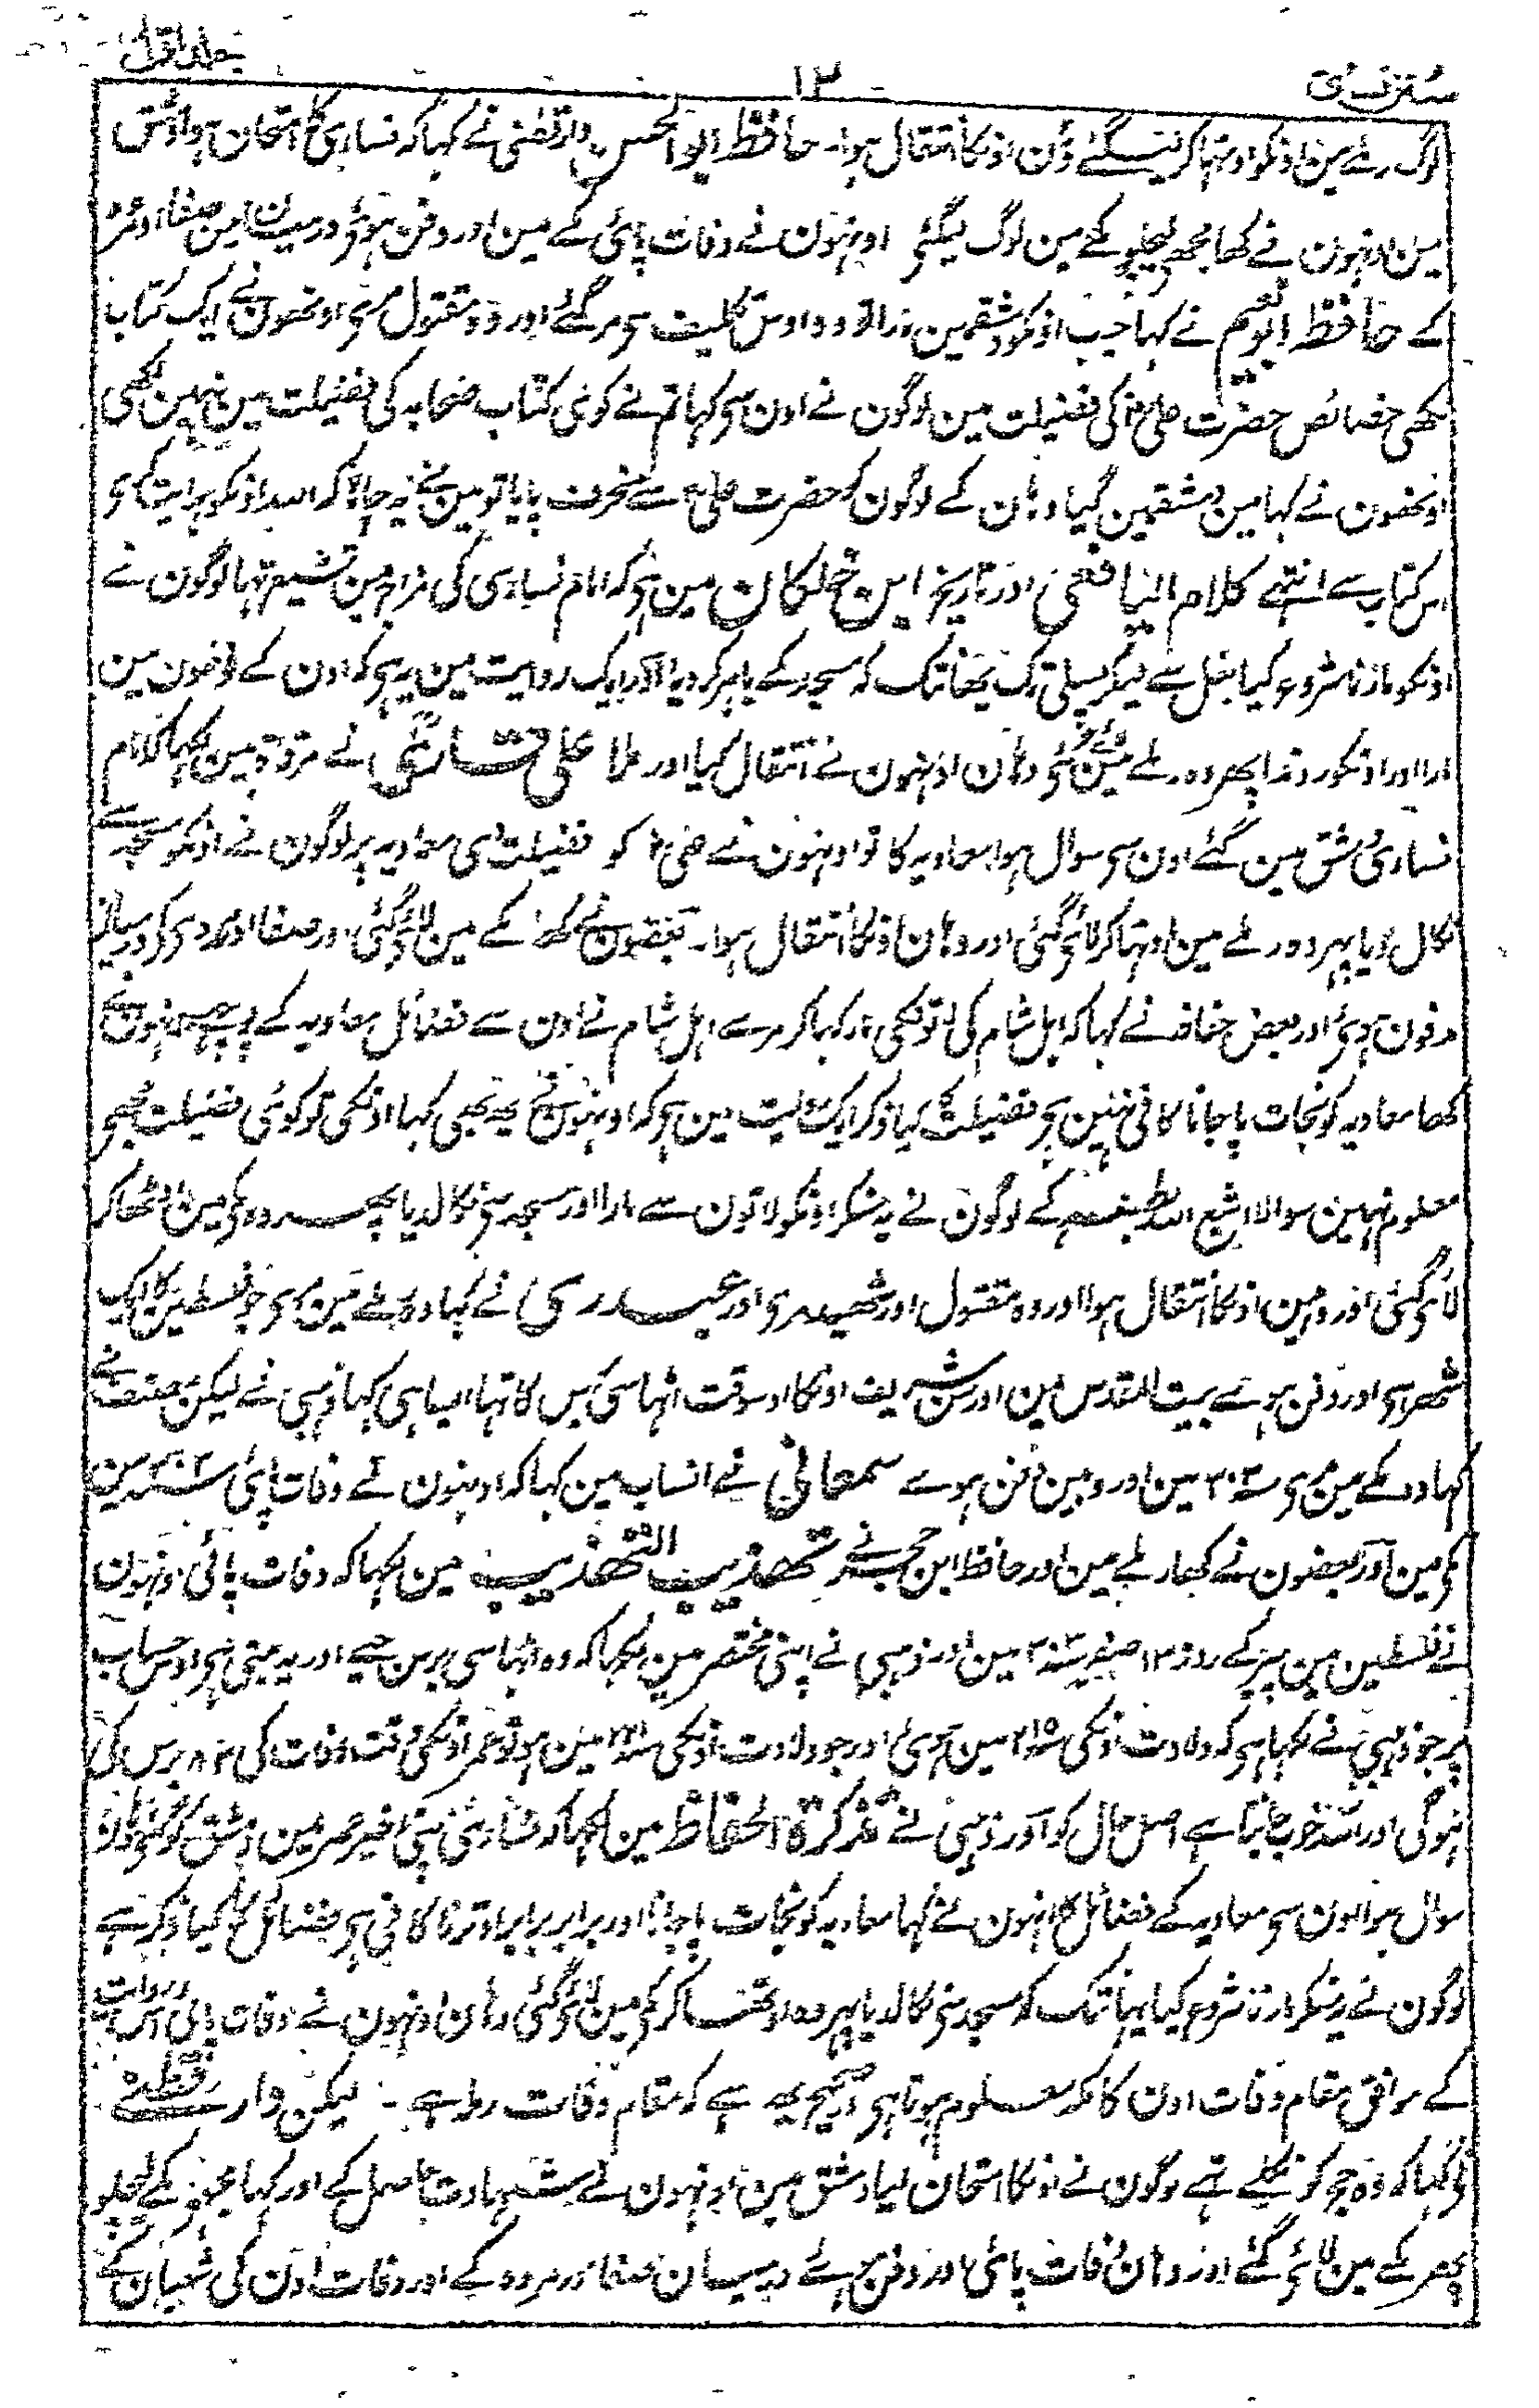 سنن نسائی ۱۲ جلد اول
لوگ رملے مین اونکو اوٹھا کر لیگئے وہان اونکا انتقال ہوا۔ حافظ ابو الحسن دارقطنی نے کہا کہ نسائی کا امتحان ہوا دمشق
مین اونہون نے کہا مجھے لیچلو مکے مین لوگ لیگئے اونہون نے وفات پائی مکے مین اور دفن ہوئے درمیان مین صفا اور مروہ
کے حافظ ابو نعیم نے کہا جب اونکو دمشق مین روندا تو وہ اوس تکلیف سے مر گئے اور وہ مقتول مرے اونھون نے ایک کتاب
لکھی خصائص حضرت علیؓ کی فضیلت مین لوگون نے اون سے کہا تم نے کوئی کتاب صحابہ کی فضیلت مین نہین لکھی
اونھون نے کہا مین دمشق مین گیا وہان کے لوگون کو حضرت علیؓ سے منحرف پایا تو مین نے یہ چاہا کہ اللہ اونکو ہدایت کرے
اس کتاب سے انتہے کلام الیافعی اور تاریخ ابن خلکان مین ہے کہ امام نسائی کی مزاج مین تشیع تھا لوگون نے
اونکو مارنا شروع کیا بغل سے لیکر پسلی تک یہانتک کہ مسجد کے باہر کر دیا اور ایک روایت مین یہ ہے کہ اون کے خصیون مین
مارا اور اونکو روندا پھر وہ رملے مین گئے وہان اونہون نے انتقال کیا اور ملا علی قاری نے مرقاۃ مین لکھا کلام
نسائی دمشق مین گئے اون سے سوال ہوا معاویہ کا تو اونہون نے علیؓ کو فضیلت دی معاویہ پر لوگون نے اونکو مسجد سے
نکال دیا پھر وہ رملے مین اوٹھا کر لائے گئے اور وہان اونکا انتقال ہوا۔ بعضون نے کہا مکے مین لائے گئے اور صفا اور مروہ کے درمیان
مدفون ہوئے اور بعض حفاظ نے کہا کہ اہل شام کی لاتونکی مار کہا کر مرے اہل شام نے اون سے فضائل معاویہ کے پوچھے اونہون نے
کہا معاویہ کو نجات پا جانا کافی نہین ہے فضیلت کا کیا ذکر ایک روایت مین ہے کہ اونہون نے یہ بھی کہا اونکی تو کوئی فضیلت مجھے
معلوم نہین سوا لا اشبع اللہ بطنہ کے لوگون نے یہ سنکر اونکو لاتون سے مارا اور مسجد سے نکالدیا پھر وہ مکے مین اٹھا کر
لائے گئے اور وہین اونکا انتقال ہوا اور وہ مقتول اور شہید مرے اور عبدری نے کہا وہ رملے مین مرے جو فلسطین کا ایک
شہر ہے اور دفن ہوئے بیت المقدس مین اور سن شریف اونکا اوسوقت اٹھاسی برس کا تھا ایسا ہی کہا ذہبی نے لیکن مصنف نے
کہا وہ مکے مین مرے سنہ ۳۰۳ مین اور وہین دفن ہوے سمعانی نے انساب مین کہا کہ اونہون نے وفات پائی سنہ ۳۰۳ مین
مکے مین اور بعضون نے کہا رملے مین اور حافظ ابن حجر نے تھذیب التھذیب مین لکھا کہ وفات پائی اونہون
نے فلسطین مین پیر کے روز ۱۳ صفر سنہ ۳۰۳ مین اور ذہبی نے اپنی مختصر مین لکھا کہ وہ اٹھاسی برس جیے اور یہ مبنی ہے اوس حساب
پر جو ذہبی نے لکھا ہے کہ ولادت اونکی سنہ ۲۱۵ مین ہوئی اور جو ولادت اونکی سنہ ۲۲۱ مین ہو تو عمر اونکی وقت وفات کی ۸۲ برس کی
ہوگی اور اللہ خوب جانتا ہے اصل حال کو اور ذہبی نے تذکرۃ الحفاظ مین لکھا کہ نسائی اپنی اخیر عمر مین دمشق کو گئے وہان
سوال ہوا اون سے معاویہ کے فضائل کا اونہون نے کہا معاویہ کو نجات پا جانا اور برابر برابر اوترنا کافی ہے فضائل کا کیا ذکر ہے
لوگون نے یہ سنکر مارنا شروع کیا یہانتک کہ مسجد سے نکالدیا پھر وہ اوٹھا کر مکے مین لائے گئے وہان اونہون نے وفات پائی اس روایت
کے موافق مقام وفات اون کا مکہ معلوم ہوتا ہے اور صحیح یہ ہے کہ مقام وفات رملہ ہے۔ لیکن دارقطنی
نے کہا کہ وہ حج کو نکلے تھے لوگون نے اونکا امتحان لیا دمشق مین اونہون نے شہادت حاصل کے اور کہا مجھے مکے لیچلو
پھر مکے مین لائے گئے اور وہان وفات پائی اور دفن ہوئے درمیان صفا اور مروہ کے اور وفات اون کی شعبان کے